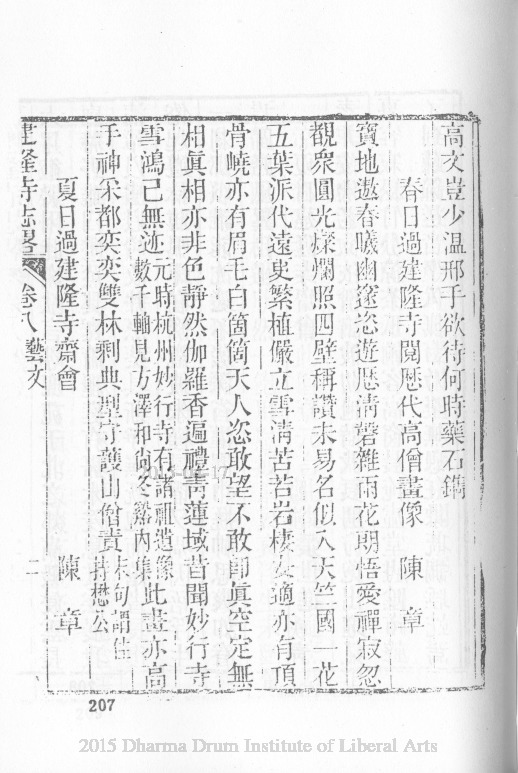 高文豈少温邢子欲待何時藥石鐫
春日過建隆寺閱歷代高僧畫像　陳　章
寶地遨春曦幽窺恣遊歷淸磬雜雨花明悟愛禪寂忽
觀衆圓光燦爛照四壁稱讚未易名似入天竺國一花
五葉派代遠更繁植儼立雪淸苦若岩棲安適亦有頂
骨嶢亦有眉毛白箇箇天人恣敢望不敢卽眞空定無
相眞相亦非色靜然伽羅香遍禮靑蓮域昔聞妙行寺
雪鴻已無迹元時杭州妙行寺有諸祖遺像數千軸見方澤和尚冬谿內集此畫亦高
手神采都奕奕雙林剩典型守護山僧責末句謂住持懋公
夏日過建隆寺齋會　陳　章
建隆寺志畧　卷八藝文　二
207
2015 Dharma Drum Institute of Liberal Arts